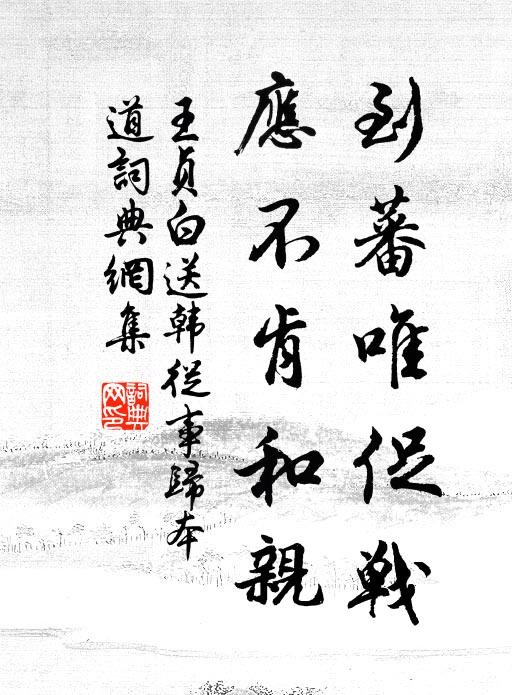 到蕃唯促戰
應不肯和親
王貞白送韩從事歸本
道詞典網集
詞典
网印